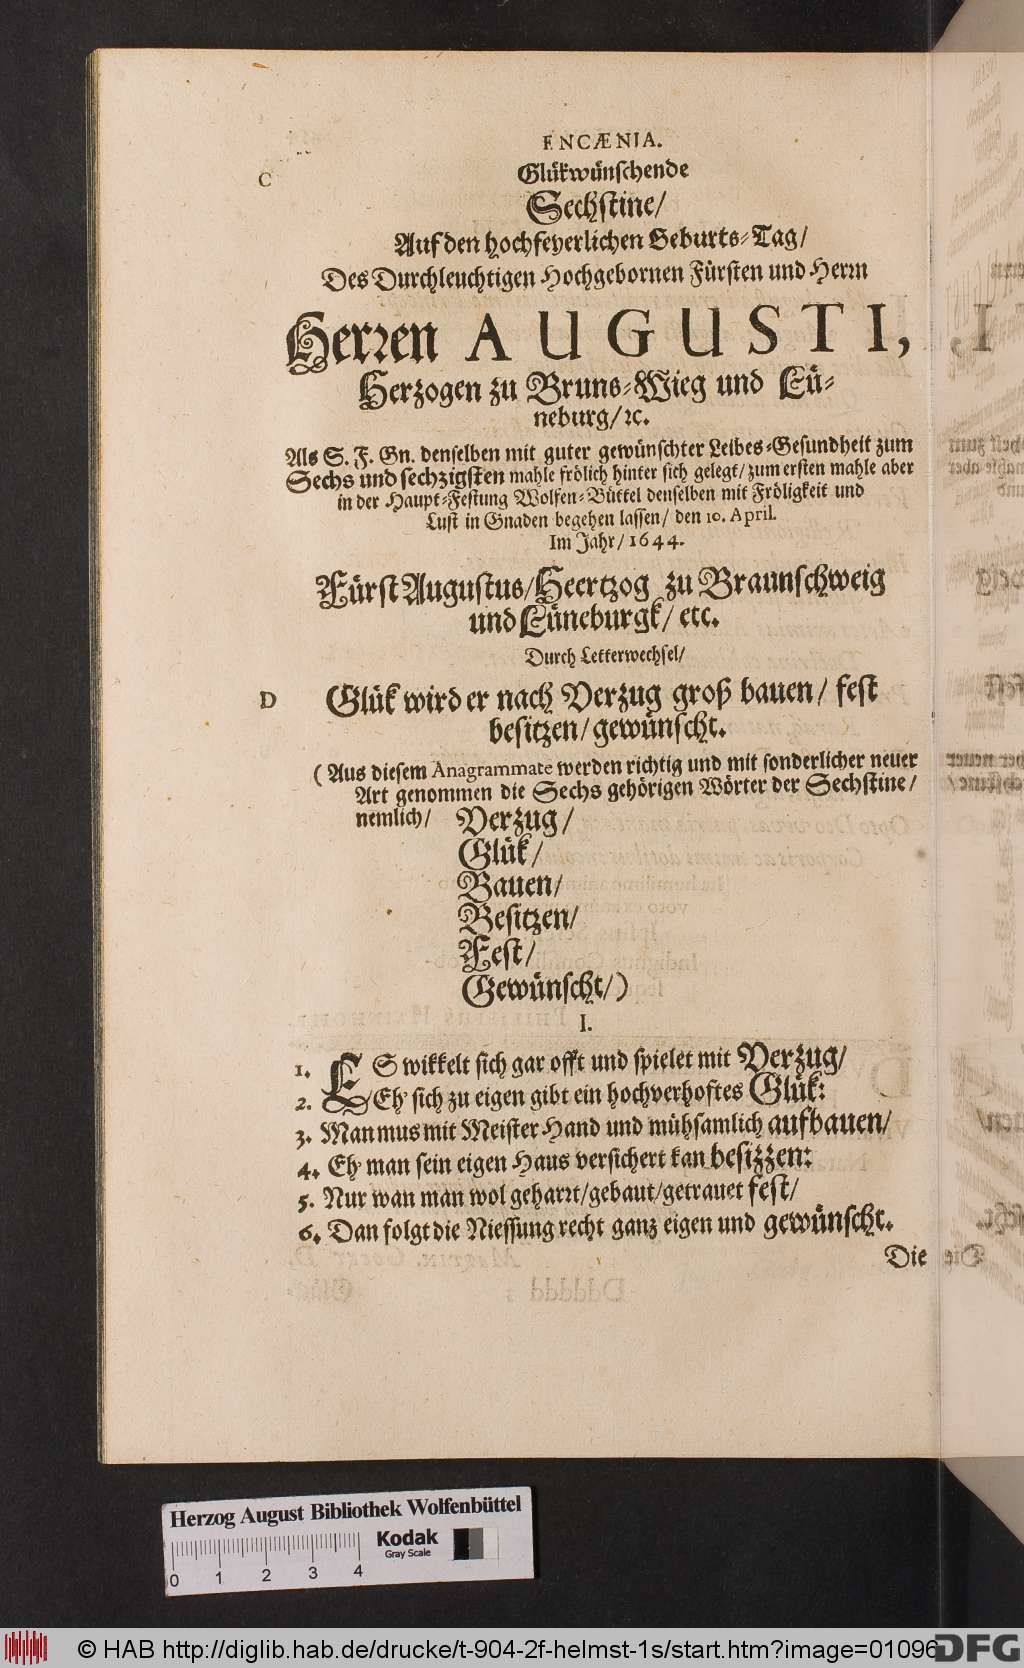 ENCÆNIA.
C
Glükwünschende
Sechstine/
Auf den hochfeyerlichen Geburts-Tag/
Des Durchleuchtigen Hochgebornen Fürsten und Herrn
Herren AUGUSTI,
Herzogen zu Bruns-Wieg und Lü-
neburg/ ꝛc.
Als S. F. Gn. denselben mit guter gewünschter Leibes-Gesundheit zum
Sechs und sechzigsten mahle frölich hinter sich gelegt/ zum ersten mahle aber
in der Haupt-Festung Wolfen-Büttel denselben mit Fröligkeit und
Lust in Gnaden begehen lassen/ den 10. April.
Im Jahr/ 1644.
Fürst Augustus/ Heertzog zu Braunschweig
und Lüneburgk/ etc.
Durch Letterwechsel/
D
Glük wird er nach Verzug groß bauen/ fest
besitzen/ gewünscht.
(Aus diesem Anagrammate werden richtig und mit sonderlicher neuer
Art genommen die Sechs gehörigen Wörter der Sechstine/
nemlich/ Verzug/
Glük/
Bauen/
Besitzen/
Fest/
Gewünscht/)
I.
1. ES wikkelt sich gar offt und spielet mit Verzug/
2. Eh' sich zu eigen gibt ein hochverhoftes Glük:
3. Man mus mit Meister Hand und mühsamlich aufbauen/
4. Eh' man sein eigen Haus versichert kan besizzen:
5. Nur wan man wol geharrt/ gebaut/ getrauet fest/
6. Dan folgt die Niessung recht ganz eigen und gewünscht.
Die
Herzog August Bibliothek Wolfenbüttel
Kodak
Gray Scale
0 1 2 3 4
© HAB http://diglib.hab.de/drucke/t-904-2f-helmst-1s/start.htm?image=01096
DFG